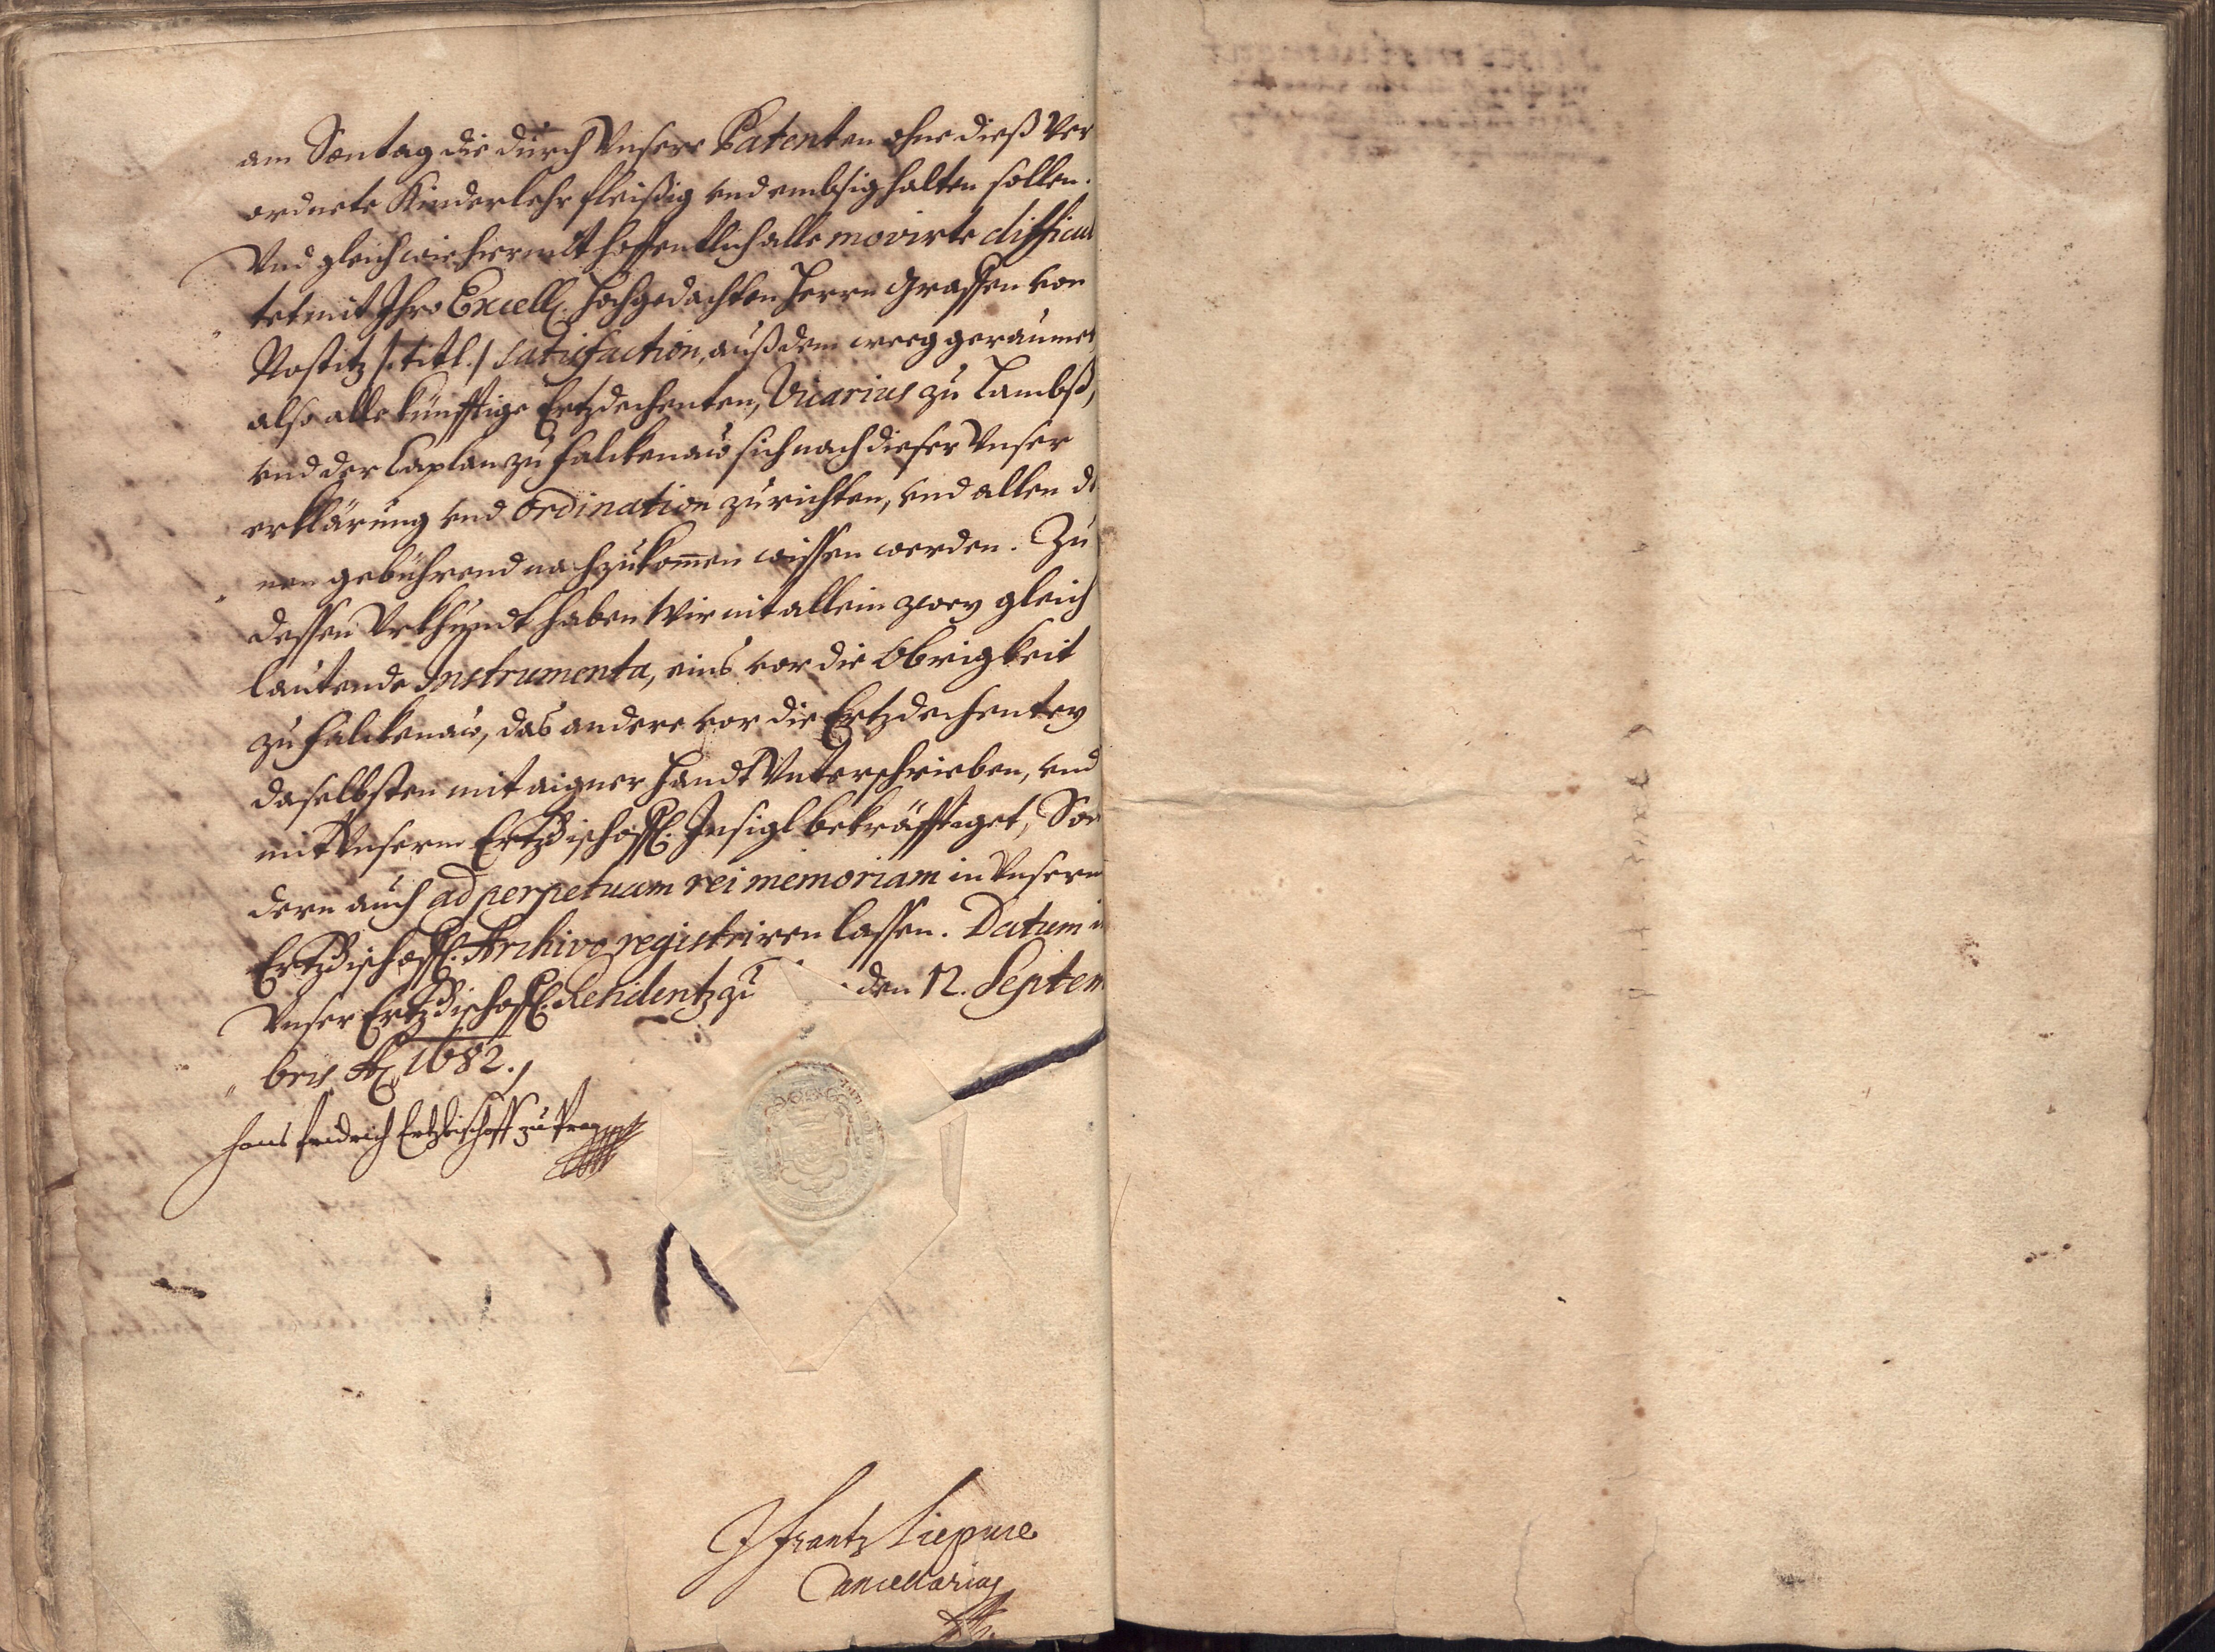 am Sontag die durch Unsere Patenten ohne dieß Ver
ordnete Kinderlehr fleißig und embsig halten sollen.
Und gleich wie hiermit hoffentlich alle movirte difficul
tet mit Ihro Excell. Hochgedachten Herrn Graffen von
Nostitz /:titl:/ satisfaction, auß dem weeg geraumet,
also alle künfftige Ertzdechenten, Vicarius zu Lambß,
und der Caplan zu Falckenaw sich nach dieser Unser
erklärung und ordination zu richten, und allen de
nen gebührend nachzukom̄en wissen werden. Zu
dessen Urkhundt haben Wir nit allein zwey gleich
lautende Instrumenta, eins vor die Obrigkeit
zu Falckenaw, das andere vor die Ertzdechentey
daselbsten mit aigner Handt Unterschrieben, und
mit Unserm Ertzbischoffl. Insigl bekräfftiget, Son
dern auch ad perpetuam rei memoriam in Unserm
Ertzbischoffl. Archivo registriren lassen. Datum in
Unser Ertzbischoffl. Residentz zu den 12. Septem
bris Aō 1682.
Hans Fridrich Ertzbischoff zu Prag
J Frantz Liepure
Cancellarius